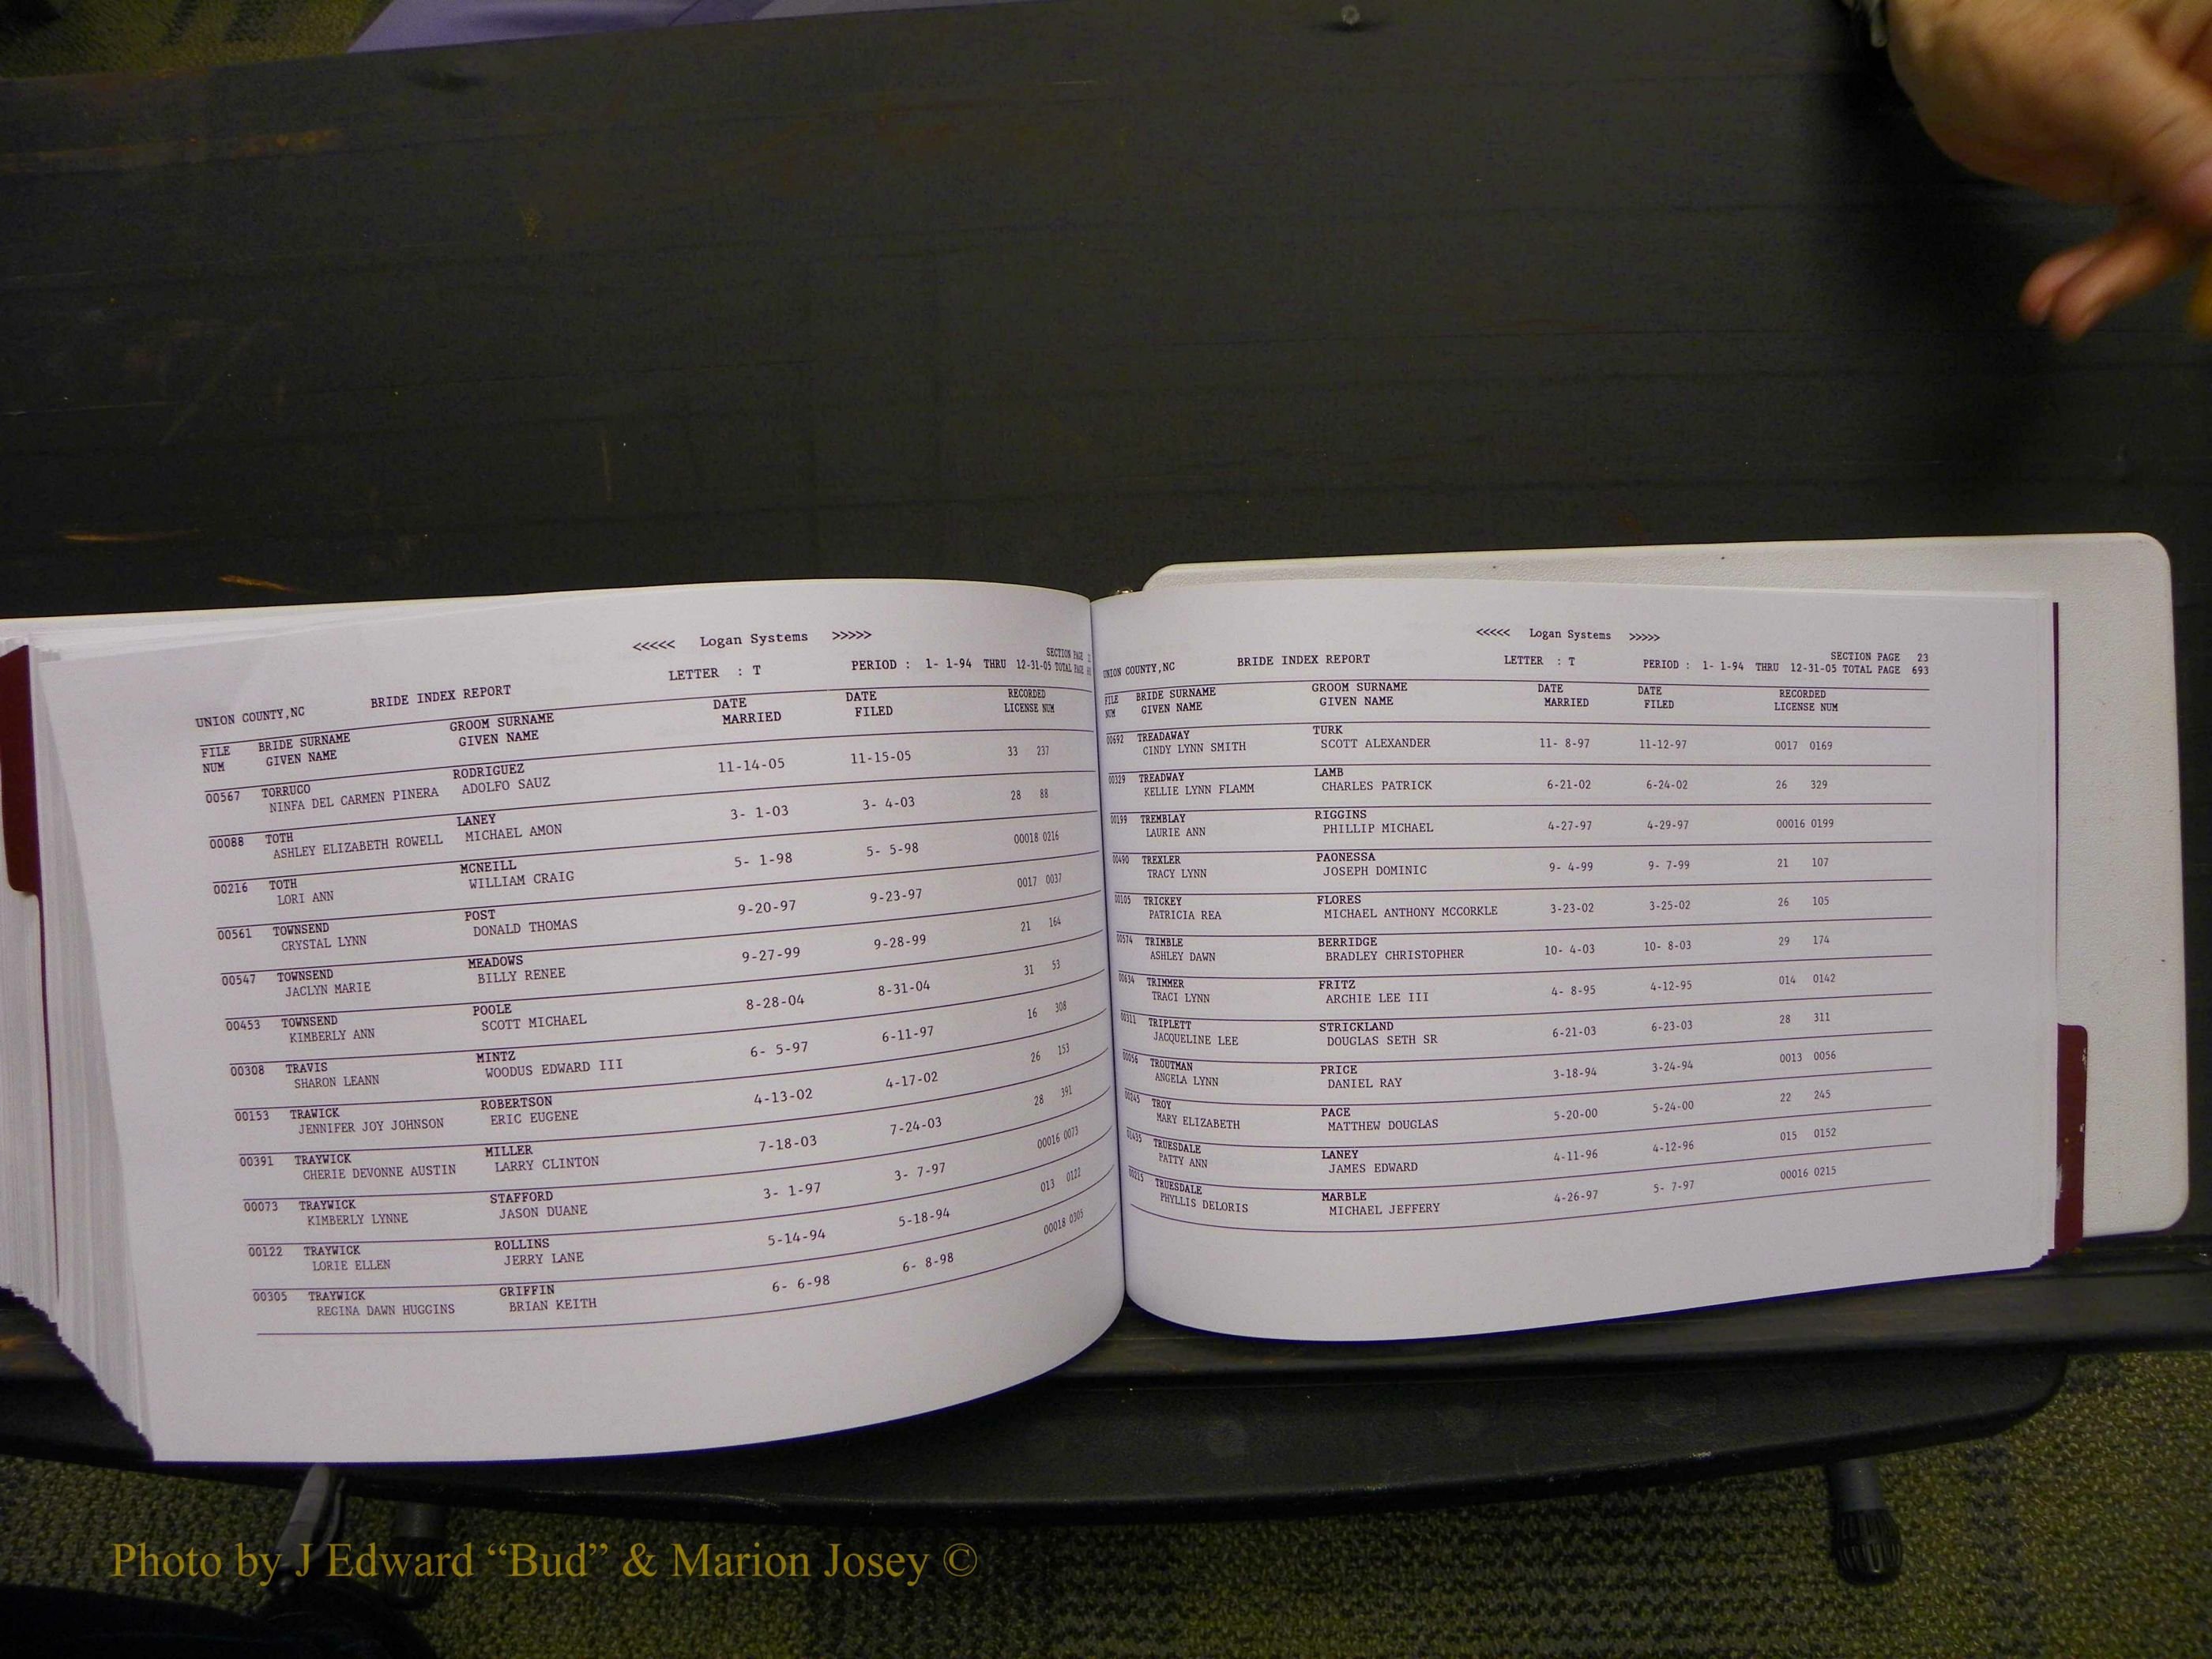 <<<<< Logan Systems >>>>>
UNION COUNTY,NC BRIDE INDEX REPORT LETTER : T PERIOD : 1- 1-94 THRU 12-31-05 SECTION PAGE
TOTAL PAGE
FILE NUM BRIDE SURNAME GIVEN NAME GROOM SURNAME GIVEN NAME DATE MARRIED DATE FILED RECORDED LICENSE NUM
00567 TORRUCO RODRIGUEZ 11-14-05 11-15-05 33 237
NINFA DEL CARMEN PINERA ADOLFO SAUZ
00088 TOTH LANEY 3- 1-03 3- 4-03 28 88
ASHLEY ELIZABETH ROWELL MICHAEL AMON
00216 TOTH MCNEILL 5- 1-98 5- 5-98 00018 0216
LORI ANN WILLIAM CRAIG
00561 TOWNSEND POST 9-20-97 9-23-97 0017 0037
CRYSTAL LYNN DONALD THOMAS
00547 TOWNSEND MEADOWS 9-27-99 9-28-99 21 164
JACLYN MARIE BILLY RENEE
00453 TOWNSEND POOLE 8-28-04 8-31-04 31 53
KIMBERLY ANN SCOTT MICHAEL
00308 TRAVIS MINTZ 6- 5-97 6-11-97 16 308
SHARON LEANN WOODUS EDWARD III
00153 TRAWICK ROBERTSON 4-13-02 4-17-02 26 153
JENNIFER JOY JOHNSON ERIC EUGENE
00391 TRAYWICK MILLER 7-18-03 7-24-03 28 391
CHERIE DEVONNE AUSTIN LARRY CLINTON
00073 TRAYWICK STAFFORD 3- 1-97 3- 7-97 00016 0073
KIMBERLY LYNNE JASON DUANE
00122 TRAYWICK ROLLINS 5-14-94 5-18-94 013 0122
LORIE ELLEN JERRY LANE
00305 TRAYWICK GRIFFIN 6- 6-98 6- 8-98 00018 0305
REGINA DAWN HUGGINS BRIAN KEITH
<<<<< Logan Systems >>>>>
UNION COUNTY,NC BRIDE INDEX REPORT LETTER : T PERIOD : 1- 1-94 THRU 12-31-05 SECTION PAGE 23
TOTAL PAGE 693
FILE NUM BRIDE SURNAME GIVEN NAME GROOM SURNAME GIVEN NAME DATE MARRIED DATE FILED RECORDED LICENSE NUM
00692 TREADAWAY TURK 11- 8-97 11-12-97 0017 0169
CINDY LYNN SMITH SCOTT ALEXANDER
00329 TREADWAY LAMB 6-21-02 6-24-02 26 329
KELLIE LYNN FLAMM CHARLES PATRICK
00199 TREMBLAY RIGGINS 4-27-97 4-29-97 00016 0199
LAURIE ANN PHILLIP MICHAEL
00490 TREXLER PAONESSA 9- 4-99 9- 7-99 21 107
TRACY LYNN JOSEPH DOMINIC
00105 TRICKEY FLORES 3-23-02 3-25-02 26 105
PATRICIA REA MICHAEL ANTHONY MCCORKLE
00574 TRIMBLE BERRIDGE 10- 4-03 10- 8-03 29 174
ASHLEY DAWN BRADLEY CHRISTOPHER
00634 TRIMMER FRITZ 4- 8-95 4-12-95 014 0142
TRACI LYNN ARCHIE LEE III
00311 TRIPLETT STRICKLAND 6-21-03 6-23-03 28 311
JACQUELINE LEE DOUGLAS SETH SR
00056 TROUTMAN PRICE 3-18-94 3-24-94 0013 0056
ANGELA LYNN DANIEL RAY
00245 TROY PACE 5-20-00 5-24-00 22 245
MARY ELIZABETH MATTHEW DOUGLAS
TRUESDALE LANEY 4-11-96 4-12-96 015 0152
PATTY ANN JAMES EDWARD
00215 TRUESDALE MARBLE 4-26-97 5- 7-97 00016 0215
PHYLLIS DELORIS MICHAEL JEFFERY
Photo by J Edward “Bud” & Marion Josey ©